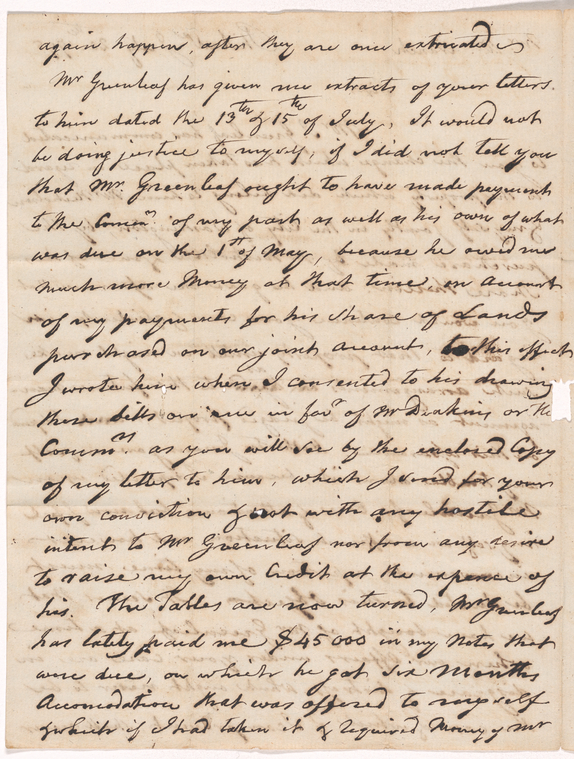 again happen, after they are once extricated
Mr Greenleaf has given me extracts of your letters
to him dated the 13th & 15th of July, It would not
be doing justice to myself, if I did not tell you
that Mr. Greenleaf ought to have made payment
to the Comrs of my part as well as his own of what
was due on the 1st of May, because he owed me
much more Money at that time, on account
of my payments for his share of Lands
purchased on our joint account, to this effect
I wrote him when I consented to his drawing
those bills on me in favr of Mr Deakins or the
Commrs. as you will see by the enclosed Copy
of my letter to him, which I send for your
own conviction & not with any hostile
intent to Mr Greenleaf nor from any desire
to raise my own Credit at the expence of
his. The Tables are now turned, Mr Greenleaf
has lately paid me $45000 in my Notes that
were due, on which he got six Months
Accomodation that was offered to myself
& which if I had taken it & required Money of Mr